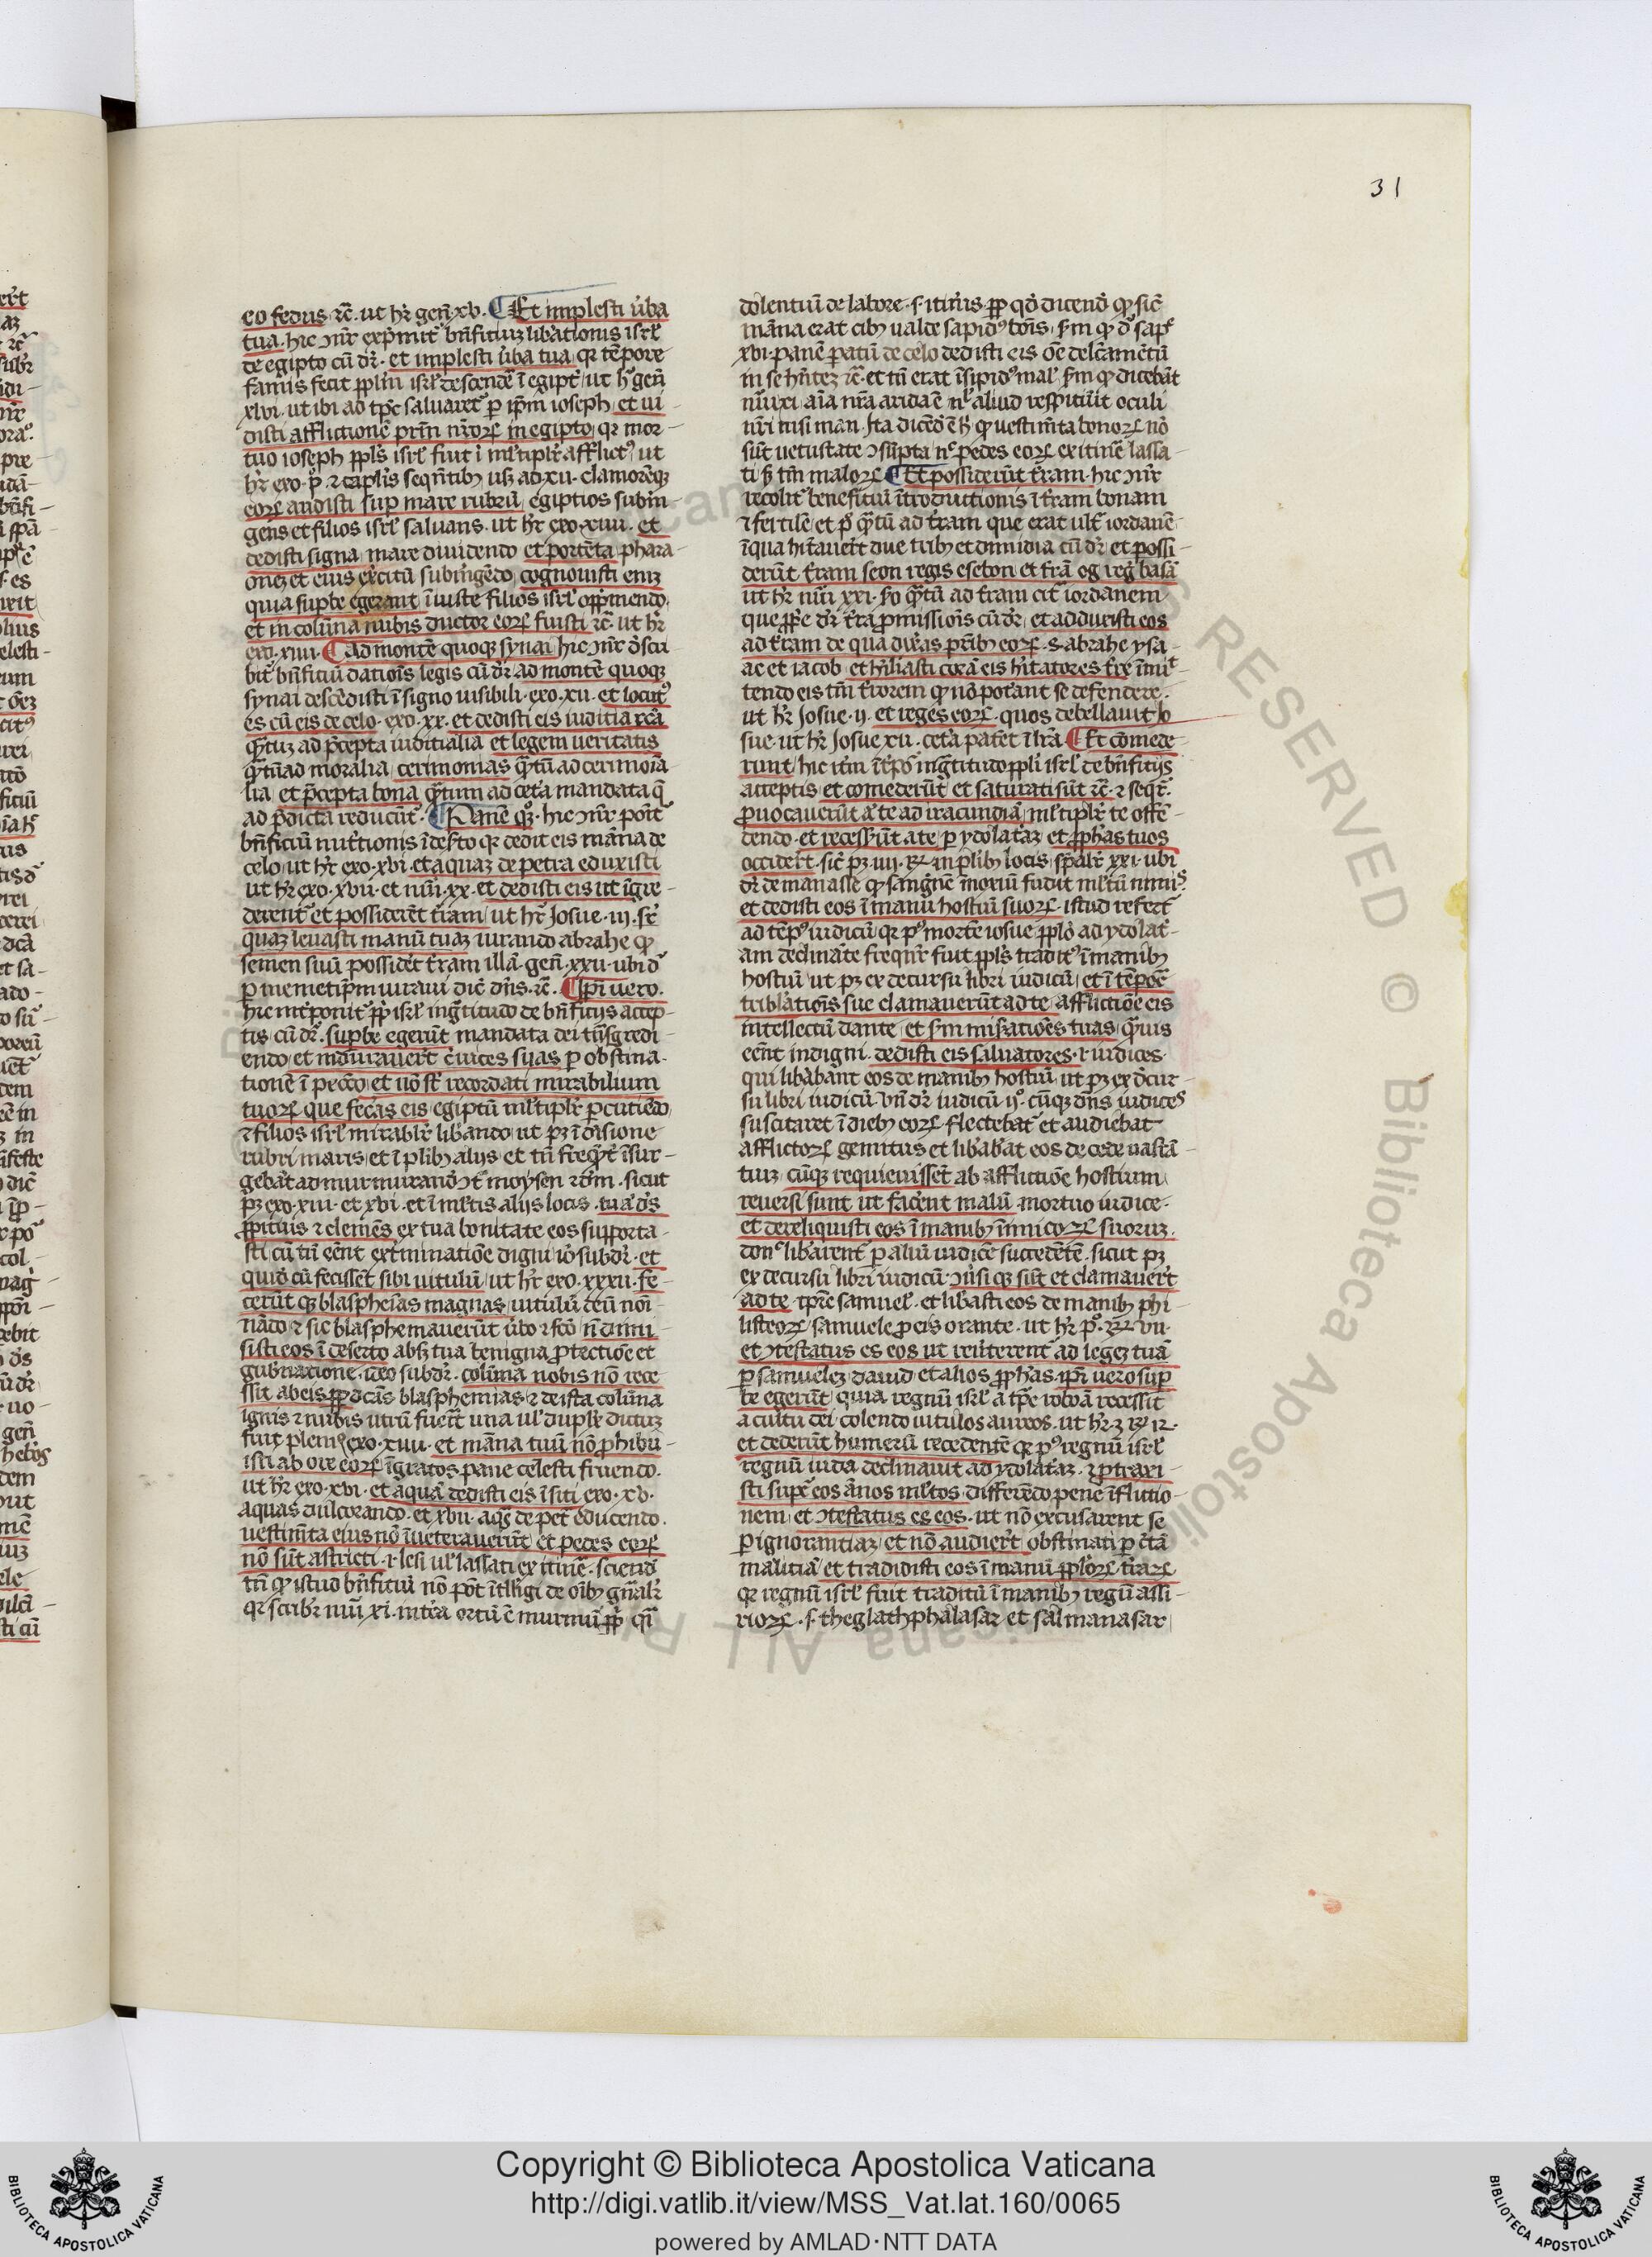 31
eo fedus ⁊c̃. ut hr̃ gen̄ xv. Et implesti ũba
tua. hic ↄñr exp̃mit̃ bñfitiuz lib̃ationis isrl̃
de egipto cũ dr̃. et implesti ũba tua qr tẽpore
famis fecit ppl̃m isrl̃ descendẽ ĩ egipt̃ ut hr̃ gen̄
xlvi. ut ibi ad tp̃c saluaret̃ p ip̃m ioseph et ui-
disti afflictionẽ pr̃m nr̃oꝝ in egipto qr mor-
tuo ioseph ppl̃s isrl̃ fuit ĩ ml̃tiplr̃ afflict⁹ ut
hr̃ exo. p̊. ⁊ capl̃is seqñtibꝫ usꝫ ad xii. clamorẽqꝫ
eoꝝ audisti sup mare rubrũ egiptios subm̃-
gens et filios isrl̃ saluans. ut hr̃ exo. xiiii. et
dedisti signa mare diuidendo et portẽta phara-
onez et eius exc̃itũ subm̃gẽdo cognouisti eniz
quia supbe egerant ĩiuste filios isrl̃ opp̃mendo.
et in colũna nubis ductor eoꝝ fuisti ⁊c̃. ut hr̃
exo. xiiii. Ad montẽ quoqꝫ synai hic ↄñr d̃scri
bit̃ bñfitiũ dationis legis cũ dr̃ ad montẽ quoqꝫ
synai descẽdisti ĩ signo uisibili. exo. xii. et locut⁹
es cũ eis de celo. exo. xx. et dedisti eis iuditia rc̃ã
qr̃tuz ad p̃cepta iuditialia et legem ueritatis
qr̃tũ ad moralia cerimonias qr̃tũ ad cerimoĩa
lia et p̃cepta bona qr̃tum ad cet̃a mandata q̃
ad p̃dicta reducũt̃. Panẽ qꝫ. hic ↄñr ponit̃
bñfitiũ nut̃tionis ĩ des̃to qr dedit eis mãna de
celo ut hr̃ exo. xvi. et aquaz de petra eduxisti
ut hr̃ exo. xvii. et nũi. xx. et dedisti eis ut ĩgre-
derent̃ et possiderẽt t̃ram ut hr̃ Josue. iii. sr̃
quaz leuasti manũ tuaz iurando abrahe qꝫ
semen suũ possidẽt t̃ram illã. gen̄. xxii. ubi d̃
p memetip̃m iuraui dic̃ dñs. ⁊c̃. Ip̃i uero.
hic int̃ponit̃ pp̃li isrl̃ ingr̃titudo de bñfitiis accep-
tis cũ dr̃. supbe egerũt mandata dei tñsgredi-
endo et indurauert̃ c̃uices suas p obstina-
tionẽ ĩ pecc̃o et nõ st̃ recordati mirabilium
tuoꝝ que fecãs eis egiptũ ml̃tiplr̃ pcutiẽdo
⁊ filios isrl̃ mirablr̃ lib̃ando ut pꝫ ĩ diuisione
rubri maris et ĩ plibꝫ aliis et tñ freqr̃t̃ ĩsur-
gebãt ad murmurandũ ↄt̃ moysen ⁊ d̃m. sicut
pꝫ exo. xiii. et xvi. et ĩ ml̃tis aliis locis. tu aũt d̃s
ppitius ⁊ clemẽs ex tua bonitate eos supporta-
sti cũ tñ eẽnt ext̃minatiõe digni iõ subdr̃. et
quidẽ cũ fecissẽt sibi uitulũ ut hr̃ exo. xxxii. fe-
cerũt qꝫ blasphemias magnas uitulũ deũ noĩ-
nãdo ⁊ sic blasphemauerũt ũbo ⁊ fc̃o ñ dimi-
sisti eos ĩ deserto absꝫ tua benigna ꝓtectiõe et
gub̃natione ideo subdr̃. colũna nobis nõ rece
ssit ab eis pp̃ dc̃as blasphemias ⁊ de ista colũna
ignis ⁊ nubis utrũ fuerit̃ una ul̃ duplr̃ dictuz
fuit pleni⁹ exo. xiiii. et mãna tuũ nõ ꝓhibu-
isti ab ore eoꝝ ĩgratos pane celesti fruendo.
ut hr̃ exo. xvi. et aquã dedisti eis ĩ siti exo. xv.
aquas dulcorando. et xvii. aqs̃ de pet̃ educendo.
uestim̃ta eius nõ ĩueterauerũt et pedes eoꝝ
nõ sũt astricti. i. lesi ul̃ lassati ex itinẽ. sciend̃
tñ qꝫ istud bñfitiũ nõ põt ĩtlligi de oĩbꝫ gñalr̃
qr scribr̃ nũi xi. int̃ea ortũ ẽ murmur̃ pp̃li q̃i
dolentiũ de labore. s. itin̄is. pp̃ qd̃ dicend̃ qꝫ sic̃
mãna erat cibꝫ ualde sapid⁹ bonis. s̃m qꝫ d̃ sap̃
xvi. panẽ paratũ de celo dedisti eis oẽ delc̃amẽtũ
in se hñtez ⁊c̃. et tñ erat ĩsipid⁹ mal̃ s̃m qꝫ dicebãt
nũi xi. aĩa nr̃a arida ẽ n̄l aliud respitiũt oculi
nr̃i nisi man. Ita dicẽd̃ ẽ h̃ qꝫ uestim̃ta bonoꝝ nõ
sũt uetustate ↄsũpta nᶜ pedes eoꝝ ex itinẽ lassa
ti sꝫ tm̃ maloꝝ. Et possiderũt t̃ram. hic ↄñr
recolit̃ benefitiũ ĩtroductionis ĩ t̃ram bonam
⁊ fertilẽ et p̊ qr̃tũ ad t̃ram que erat ult̃ iordanẽ
ĩqua hitauert̃ due tribꝫ et dimidia cũ dr̃ et possi-
derũt t̃ram seon regis esebon et t̃rã og reg̃ basã
ut hr̃ nũi xxi. s̃o qr̃tũ ad t̃ram cit̃ iordanem
que ꝓp̃e dr̃ t̃ra ꝓmissiõis cũ dr̃. et adduxisti eos
ad t̃ram de qua dixẽas pr̃ibꝫ eoꝝ. s. abrahe ysa-
ac et iacob. et hũiliasti corã eis hĩtatores t̃re ĩmit-
tendo eis tm̃ t̃rorem qꝫ nõ pot̃ant se defendere.
ut hr̃ Josue. ii. et reges eoꝝ. quos debellauit Jo
sue. ut hr̃ Josue xii. cet̃a patẽt ĩ lr̃a. Et comede
runt hic itm̃ ĩt̃põ̃ ingr̃titudo ppl̃i isrl̃ de bñfitiis
acceptis et comederũt et saturati sũt ⁊c̃. ⁊ seqt̃.
ꝓuocauerũt aũt te ad iracundiã ml̃tiplr̃ te offẽ-
dendo. et recesserũt a te p ydolat̃az et ꝓph̃as tuos
occidert̃. sic̃ pꝫ iiii. Rꝫ in plibꝫ locis sp̃alr̃ xxi. ubi
dr̃ de manasse qꝫ sangñnẽ ĩnoxiũ fudit ml̃tũ nimis.
et dedisti eos ĩ manu hostiũ suoꝝ. istud refert̃
ad tẽp⁹ iudicũ qr p⁹ mortẽ iosue ppl̃o ad ydolat̃-
am declinãte freqñt̃ fuit ppl̃s tradit⁹ ĩ manibꝫ
hostiũ ut pꝫ ex decursu libri iudicũ et ĩ tẽpore
triblationis sue clamauerũt ad te afflictiõe eis
intellectũ dante et s̃m mis̃ationes tuas qr̃uis
eẽnt indigni. dedisti eis saluatores. i. iudices.
qui lib̃abãnt eos de manibꝫ hostiũ ut pꝫ ex d̃cur-
su libri iudicũ. vñ dr̃ iudicũ ii⁰. cũqꝫ dñs iudices
suscitaret ĩ diebꝫ eoꝝ flectebat̃ et audiebat
afflictoꝝ gemitus et lib̃abat eos de cede uastã-
tiuz cũqꝫ requieuissẽt ab afflictiõe hostium
reuersi sunt ut facẽent malũ. mortuo iudice.
et dereliquisti eos ĩ manibꝫ inimicoꝝ suoruz.
donᶜ lib̃arent̃ p aliũ iudicẽ succedẽtẽ. sicut pꝫ
ex decursu libri iudicũ ↄũsi qꝫ sũt et clamauert̃
ad te. tp̃re samuel̃. et lib̃asti eos de manibꝫ phi-
listeoꝝ samuele ꝓ eis orante. ut hr̃ p̊. Rꝫ vii.
et ↄtestatus es eos ut reũterent̃ ad legez tuã
p samuelez dauid et alios ꝓph̃as. ip̃i uero sup
be egerũt quia regnũ isrl̃ a tp̃e roboã recessit
a cultu dei colendo uitulos aureos. ut hr̃ 3 Rꝫ 12.
et dederũt humerũ recedentẽ qr p⁹ regnũ isrl̃
regnũ iuda declinauit ad ydolat̃az. ⁊ ꝓtraxi-
sti supe̊ eos ãnos ml̃tos differẽdo penẽ ĩflictio-
nem et ↄtestatus es eos. ut nõ excusarent se
p ignorantiaz et nõ audiert̃ obstinati p c̃tã
malitiã et tradidisti eos ĩ manũ ppl̃oꝝ t̃raꝝ.
qr regnũ isrl̃ fuit traditũ ĩ manibꝫ regũ assi-
rioꝝ. s. theglathphalasar et salmanasar
Copyright © Biblioteca Apostolica Vaticana
http://digi.vatlib.it/view/MSS_Vat.lat.160/0065
powered by AMLAD·NTT DATA
BIBLIOTECA APOSTOLICA VATICANA
BIBLIOTECA APOSTOLICA VATICANA